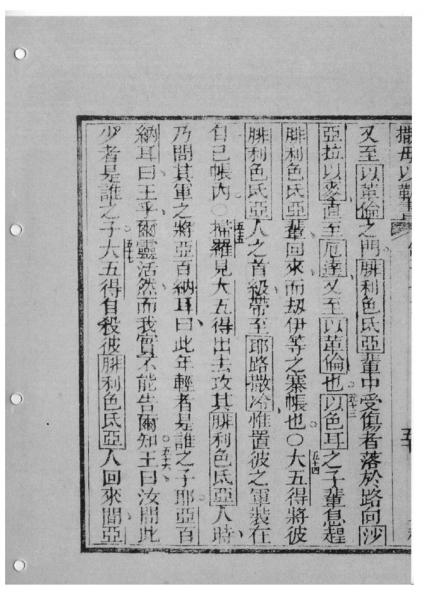 又至以革倫之門腓利色氏亞輩中受傷者落於路向沙
亞拉以麥直至厄達又至以革倫也。五十三以色耳之子輩息趕
腓利色氏亞輩回來而刼伊等之寨帳也○五十四大五得將彼
腓利色氏亞人之首級帶至耶路撒冷惟置彼之軍裝在
自己帳內○五十五掃羅見大五得出去攻其腓利色氏亞人時
乃問其軍之將亞百納耳曰此年輕者是誰之子耶亞百
納耳曰王乎爾靈活然而我實不能告爾知五十六王曰汝問此
少者是誰之子五十七大五得自殺彼腓利色氏亞人回來間亞